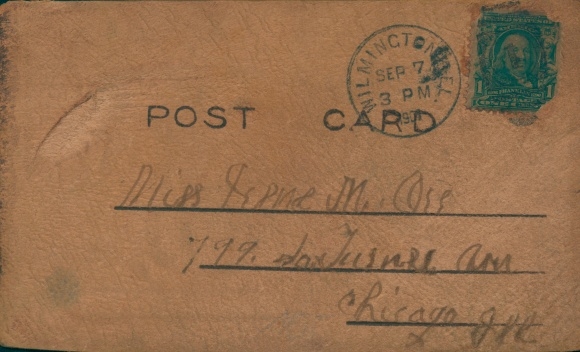 WILMINGTON, DEL.
SEP 7
3 PM
1 1
POST CARD
Miss Irene M. Orr
799.
Chicago Ill